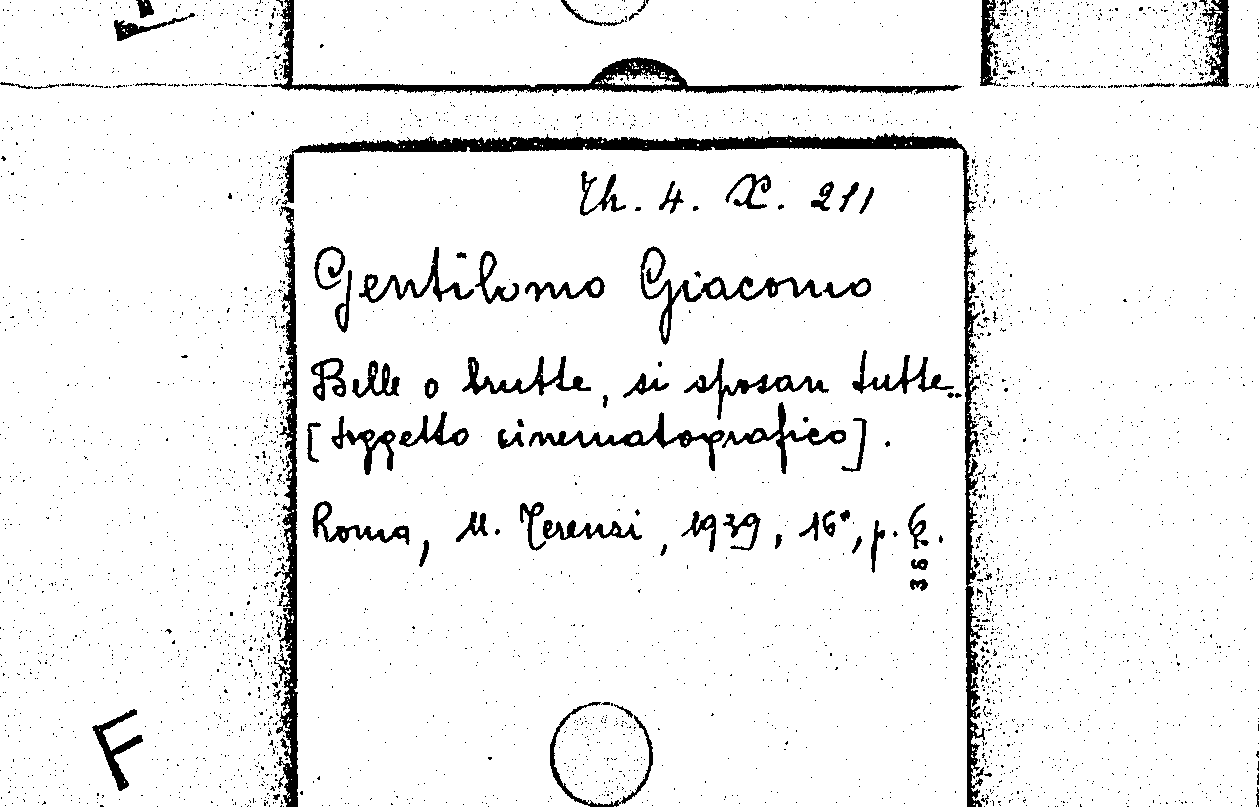 Th. 4. X. 211
Gentilomo Giacomo
Belle o brutte, si sposan tutte..
[soggetto cinematografico].
Roma, U. Terenzi, 1939, 16°, p. 6.
F